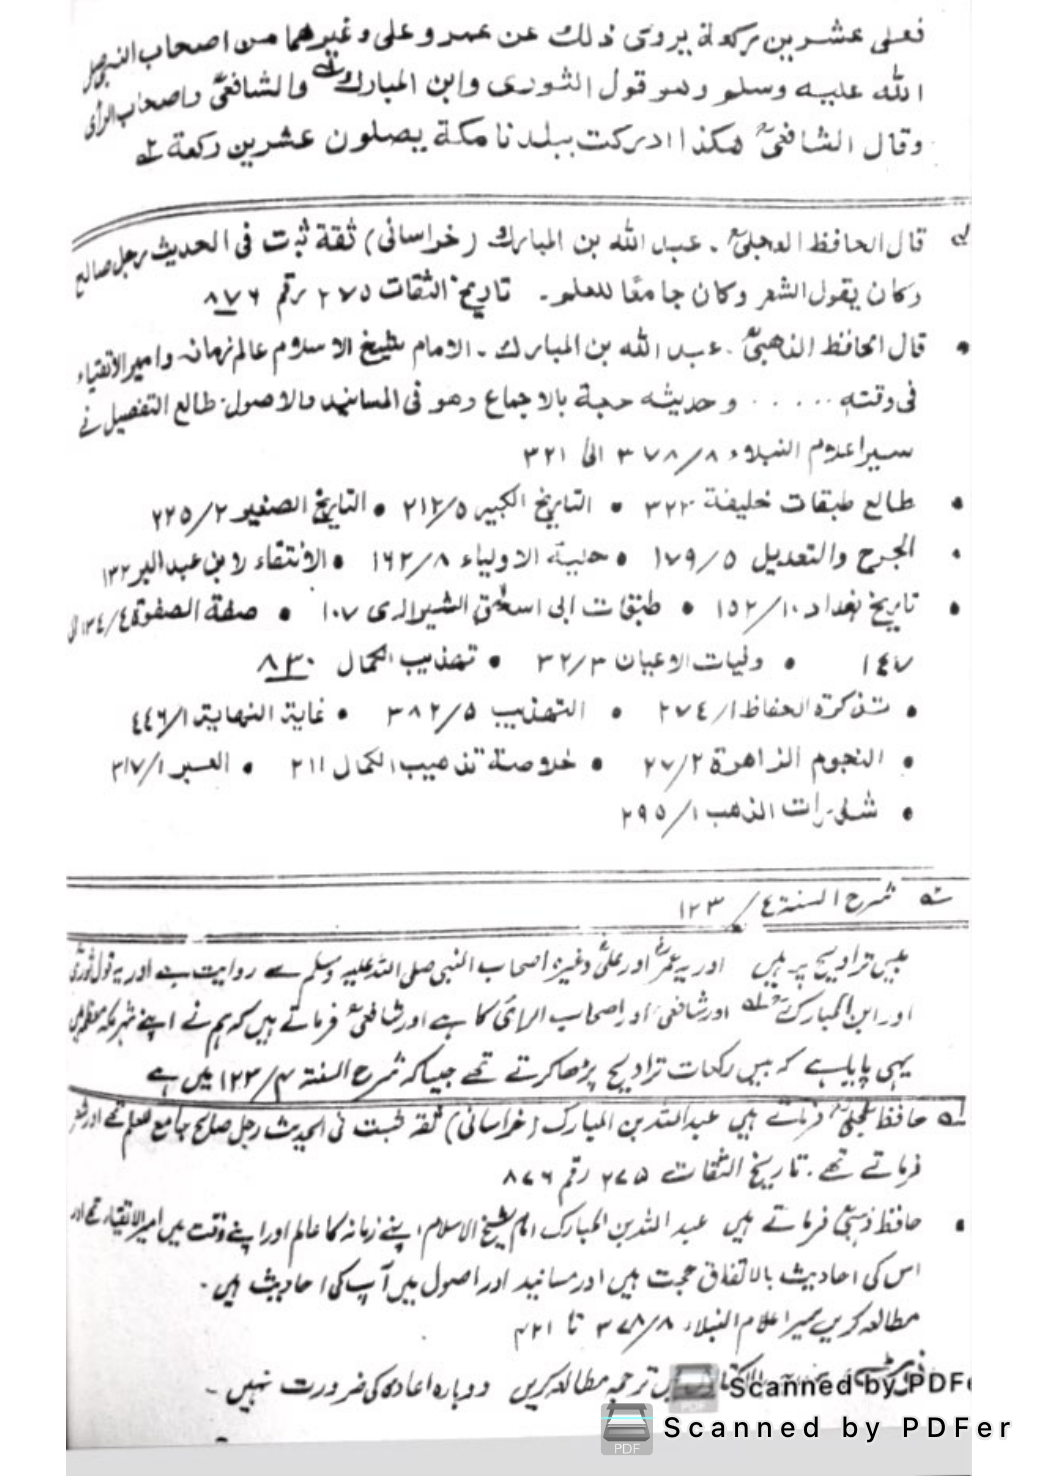 فعلى عشرين ركعة يروى ذلك عن عمر وعلى وغيرهما من اصحاب النبى صلى
الله عليه وسلم وهو قول الثورى وابن المبارك والشافعىؒ واصحاب الرأى
وقال الشافعىؒ هكذا ادركت ببلدنا مكة يصلون عشرين ركعة
قال الحافظ العجلىؒ ۔ عبد الله بن المبارك (خراسانى) ثقة ثبت فى الحديث رجل صالح
وكان يقول الشعر وكان جامعًا للعلم ۔ تاريخ الثقات ۲۷۵ رقم ۸۷۶
• قال الحافظ الذهبىؒ ۔ عبد الله بن المبارك ۔ الامام شيخ الاسلام عالم زمانه وامير الاتقياء
فى وقته ..... وحديثه حجة بالاجماع وهو فى المسانيد والاصول ۔ طالع التفصيل فى
سير اعلام النبلاء ۸/۳۷۸ الى ۳۲۱
• طالع طبقات خليفة ۳۲۳ • التاريخ الكبير ۵/۲۱۲ • التاريخ الصغير ۲/۲۲۵
• الجرح والتعديل ۵/۱۷۹ • حلية الاولياء ۸/۱۶۲ • الانتقاء لابن عبد البر ۱۳۲
• تاريخ بغداد ۱۰/۱۵۲ • طبقات ابى اسحٰق الشيرازى ۱۰۷ • صفة الصفوة ٤/۱۳٤ الى
۱٤۷ • وفيات الاعيان ۳/۳۲ • تهذيب الكمال ۸۳۰
• تذكرة الحفاظ ۱/۲۷٤ • التهذيب ۵/۳۸۲ • غاية النهاية ۱/٤٤٦
• النجوم الزاهرة ۲/۲۷ • خلاصة تذهيب الكمال ۲۱۱ • العبر ۱/۳۱۷
• شذرات الذهب ۱/۲۹۵
شرح السنة ٤/۱۲۳
بیس تراویح پر ہیں اور یہ عمرؓ اور علیؓ وغیرہ اصحاب النبی صلی اللہ علیہ وسلم سے روایت ہے اور یہ قول ثوریؒ
اور ابن المبارکؒ اور شافعیؒ اور اصحاب الرائ کا ہے اور شافعیؒ فرماتے ہیں کہ ہم نے اپنے شہر مکہ معظمہ میں
یہی پایا ہے کہ بیس رکعات تراویح پڑھا کرتے تھے جیسا کہ شرح السنة ۴/۱۲۳ میں ہے
حافظ عجلیؒ فرماتے ہیں عبد اللہ بن المبارک (خراسانی) ثقہ ثبت فی الحدیث رجل صالح جامع للعلم تھے اور شعر
فرماتے تھے ۔ تاریخ الثقات ۲۷۵ رقم ۸۷۶
• حافظ ذہبیؒ فرماتے ہیں عبد اللہ بن المبارک امام شیخ الاسلام اپنے زمانہ کا عالم اور اپنے وقت میں امیر الاتقیاء تھے اور
اس کی احادیث بالاتفاق حجت ہیں اور مسانید اور اصول میں آپ کی احادیث ہیں ۔
مطالعہ کریں سیر اعلام النبلاء ۸/۳۷۸ تا ۴۲۱
ترجمہ مطالعہ کریں دوبارہ اعادہ کی ضرورت نہیں ۔
Scanned by PDFe
Scanned by PDFer
PDF